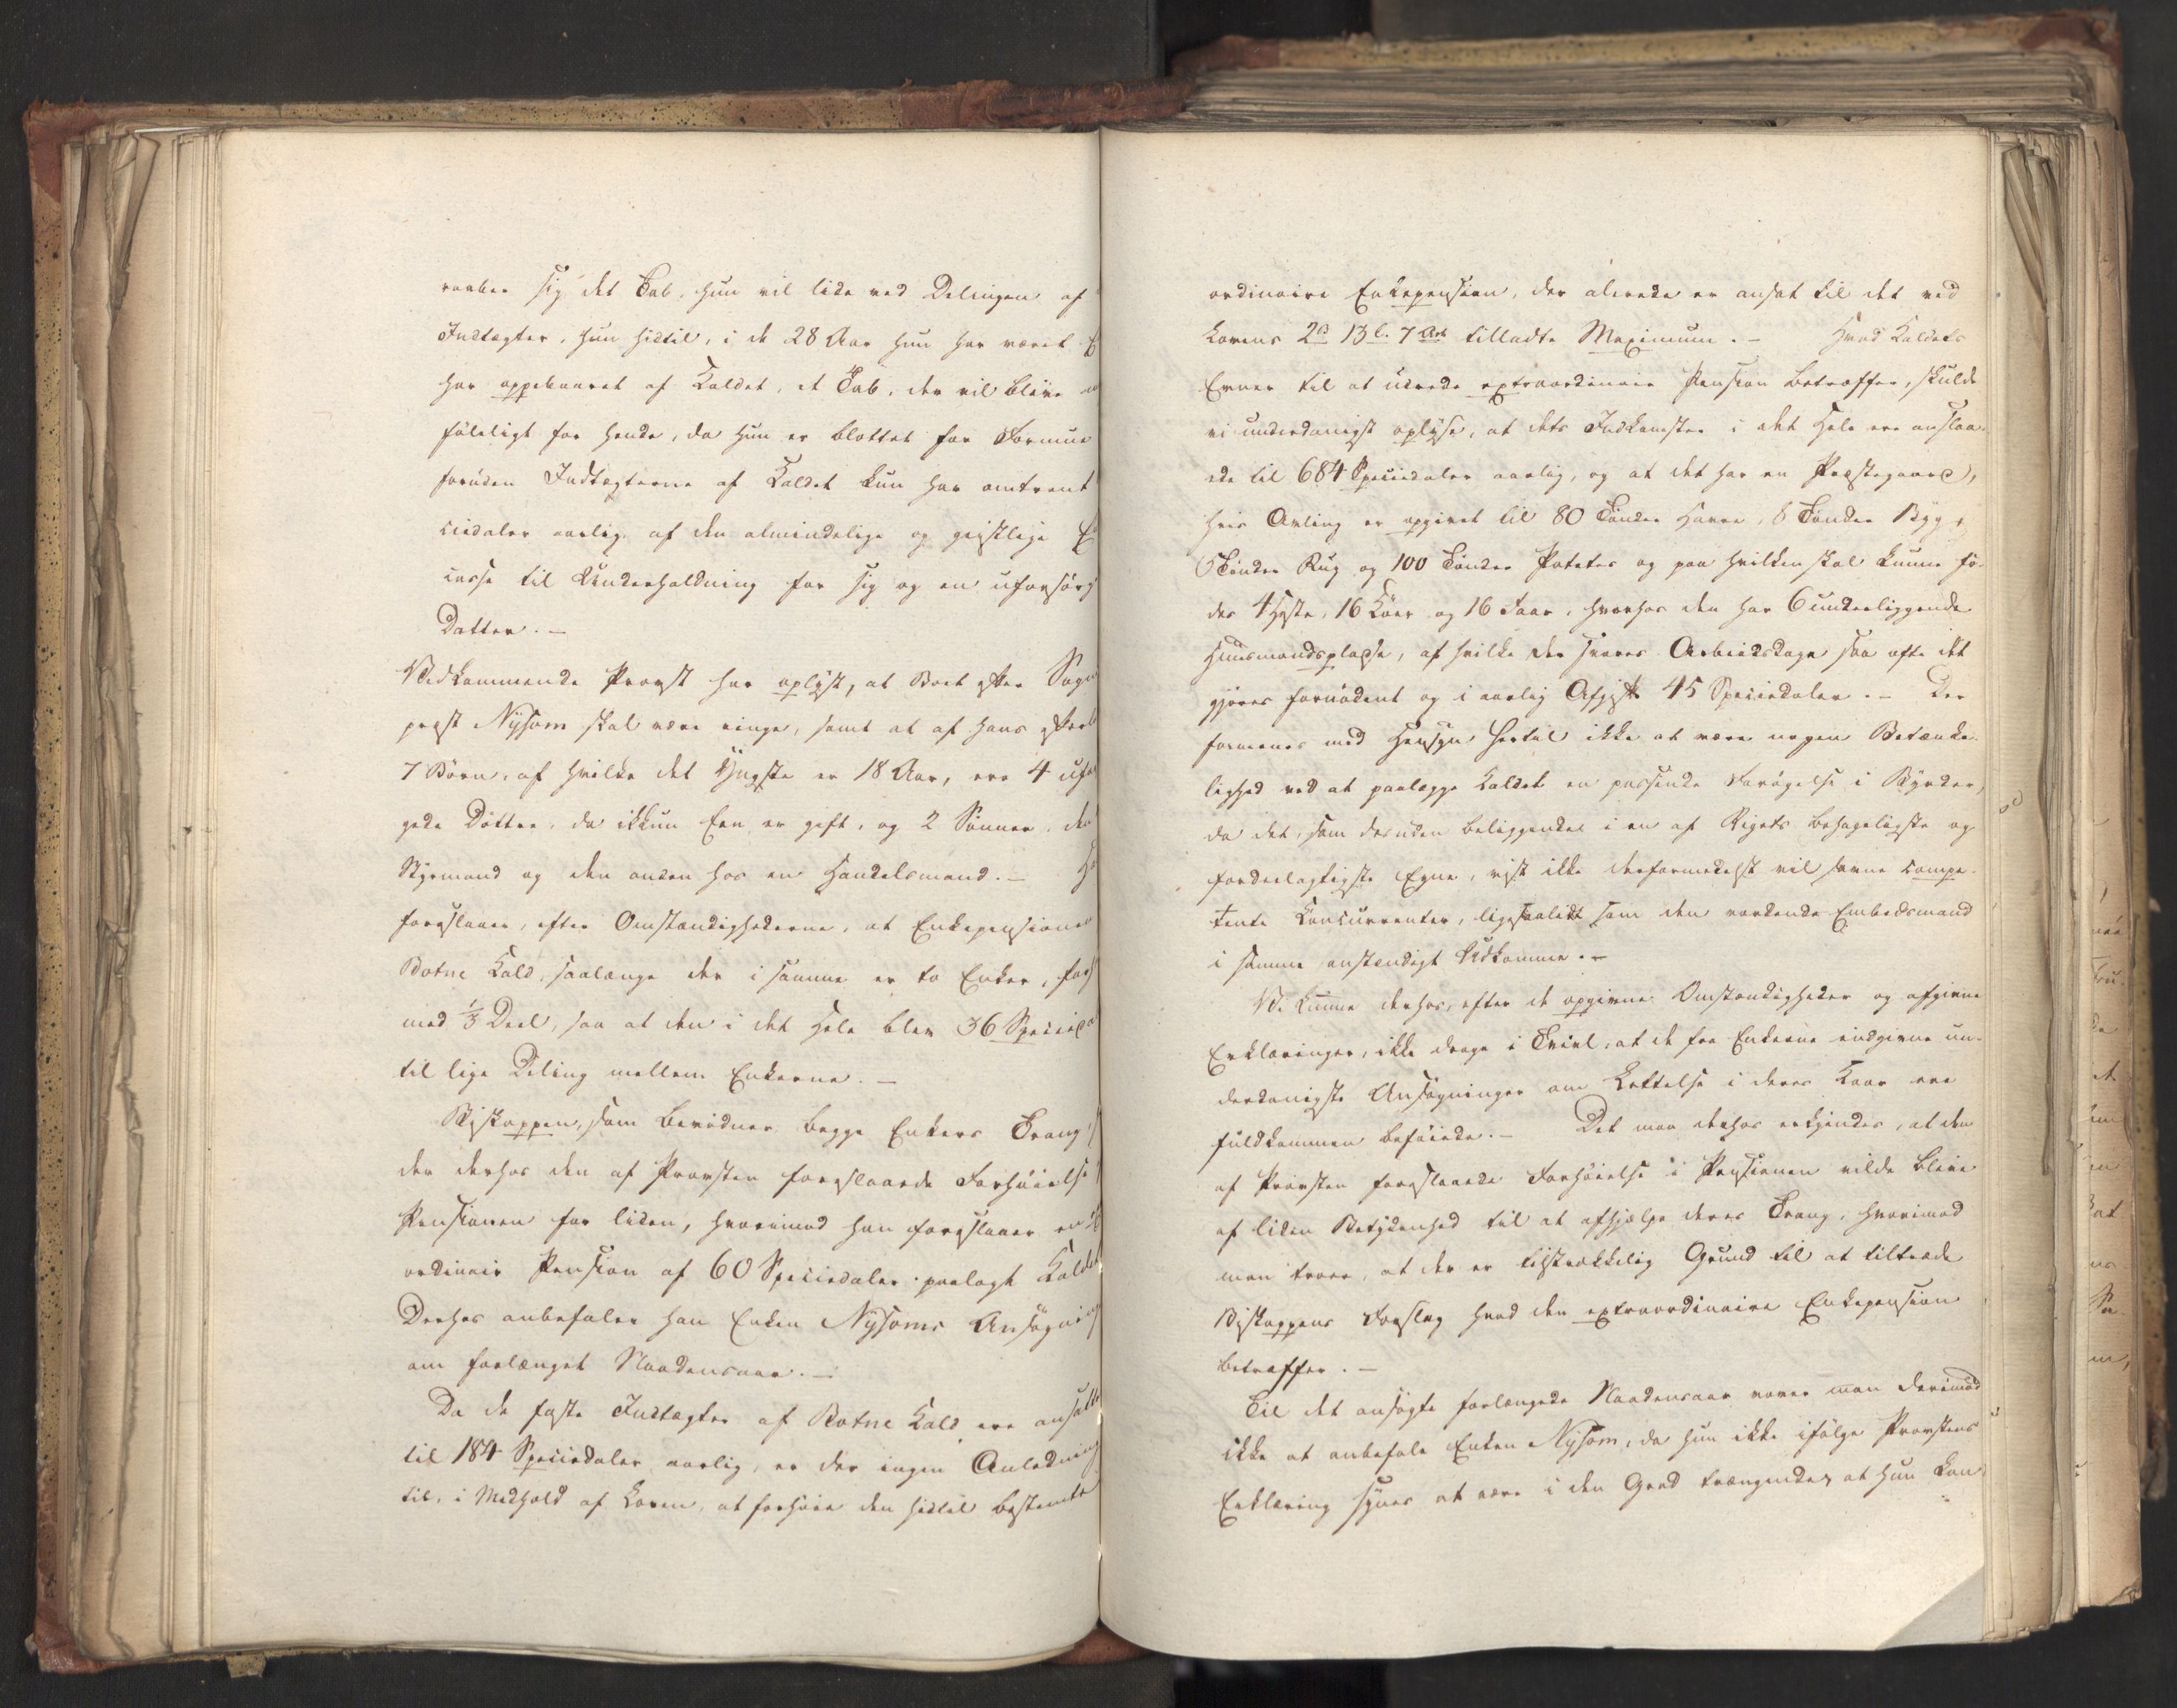 raaber sig det Tab, hun vil lide ved Delingen af
Indtægter, hun hidtil, i de 28 Aar hun har været E
har oppebaaret af Kaldet, et Tab, der vil blive
føleligt for hende, da hun er blottet for Formue
foruden Indtægterne af Kaldet kun har omtrent
ciedaler aarlig af den almindelige og geistlige E
casse til Underholdning for sig og en uforsørg
Datter. –
Vedkommende Provst har oplyst, at Boet efter Sogne
præst Nysom skal være ringe, samt at af hans efterl
7 Børn, af hvilke det Yngste er 18 Aar, ere 4 ufor
gede Døttre, da ikkun Een er gift, og 2 Sønner, den
Styrmand og den anden hos en Handelsmand. – H
foreslaaer, efter Omstændighederne, at Enkepensionen
Botne Kald, saalænge der i samme er to Enker, forh
med 1/3 Deel, saa at den i det Hele blev 36 Specieda
til lige Deling mellem Enkerne. –
Biskoppen, som bevidner begge Enkers Trang,
der derhos den af Provsten foreslaaede Forhøielse
Pensionen for liden, hvorimod han foreslaaer en
ordinair Pension af 60 Speciedaler paalagt Kaldet
Derhos anbefaler han Enken Nysoms Ansøgning
om forlænget Naadensaar. –
Da de faste Indtægter af Botne Kald ere ansatte
til 184 Speciedaler aarlig, er der ingen Anledning
til, i Medhold af Loven, at forhøie den hidtil bestemte
ordinaire Enkepension, der allerede er ansat til det ved
Lovens 2 B 13 C. 7 Art. tilladte Maximum. – Hvad Kaldets
Evner til at udrede extraordinair Pension betræffer, skulde
vi underdanigst oplyse, at dets Indkomster i det Hele ere anslaa-
ede til 684 Speciedaler aarlig, og at det har en Præstegaard,
hvis Avling er opgivet til 80 Tønder Havre, 8 Tønder Byg,
6 Tønder Rug og 100 Tønder Poteter og paa hvilken skal kunne fø-
des 4 Heste, 16 Køer og 16 Faar, hvorhos den har 6 underliggende
Huusmandspladse, af hvilke der svares Arbeidsdage saa ofte det
gjøres fornødent og i aarlig Afgift 45 Speciedaler. – Der
formenes med Hensyn hertil ikke at være nogen Betænke-
lighed ved at paalægge Kaldet en passende Forøgelse i Byrder,
da det, som desuden beliggende i en af Rigets behageligste og
fordeelagtigste Egne, vist ikke derformedelst vil savne compe-
tente Concurrenter, ligesaalidt som den vordende Embedsmand
i samme anstændigt Udkomme. –
Vi kunne derhos, efter de opgivne Omstændigheder og afgivne
Erklæringer, ikke drage i Tvivl, at de fra Enkerne indgivne un-
derdanigste Ansøgninger om Lettelse i deres Kaar ere
fuldkommen beføiede. – Det maa derhos erkjendes, at den
af Provsten foreslaaede Forhøielse i Pensionen vilde blive
af liden Betydenhed til at afhjelpe deres Trang, hvorimod
man troer, at der er tilstrækkelig Grund til at tiltræde
Biskoppens Forslag hvad den extraordinaire Enkepension
betræffer. –
Til det ansøgte forlængede Naadensaar vover man derimod
ikke at anbefale Enken Nysom, da hun ikke ifølge Provstens
Erklæring synes at være i den Grad trængende, at hun kan